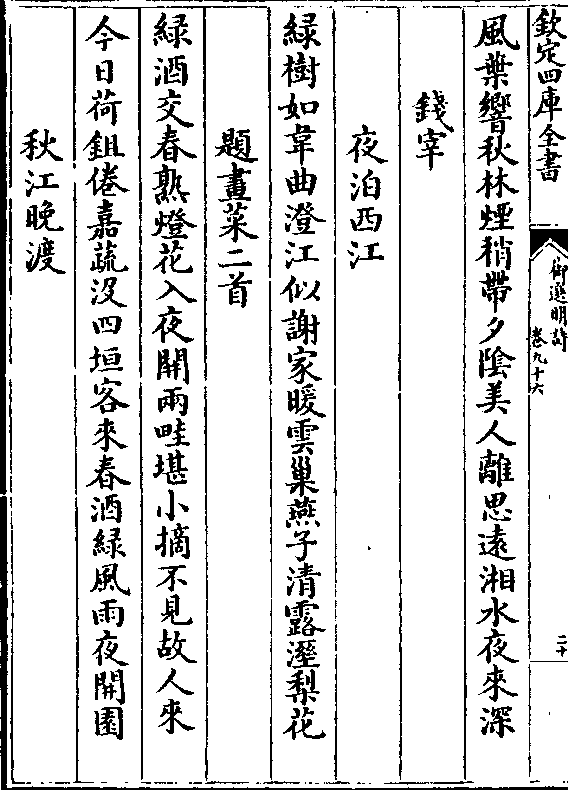 欽定四庫全書
御選明詩
卷九十六
二十
風葉響秋林煙稍帶夕陰美人離思遠湘水夜來深
錢宰
夜泊西江
綠樹如韋曲澄江似謝家暖雲巢燕子清露溼梨花
題畫菜二首
綠酒交春熟燈花入夜開兩畦堪小摘不見故人來
今日荷鉏倦嘉蔬沒四垣客來春酒綠風雨夜開園
秋江晚渡